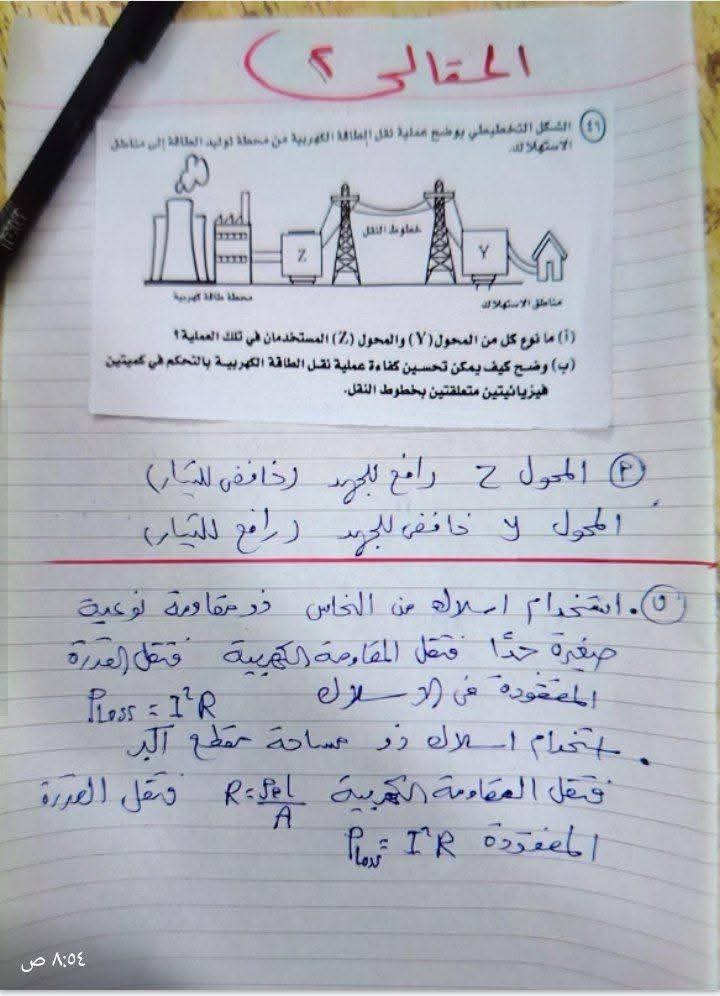 المقالى ٢
٤٦ الشكل التخطيطي يوضح عملية نقل الطاقة الكهربية من محطة توليد الطاقة إلى مناطق
الاستهلاك.
خطوط النقل
Z
Y
محطة طاقة كهربية
مناطق الاستهلاك
(أ) ما نوع كل من المحول (Y) والمحول (Z) المستخدمان في تلك العملية؟
(ب) وضح كيف يمكن تحسين كفاءة عملية نقل الطاقة الكهربية بالتحكم في كميتين
فيزيائيتين متعلقتين بخطوط النقل.
المحول Z رافع للجهد (خافض للتيار)
المحول y خافض للجهد (رافع للتيار)
. استخدام اسلاك من النحاس ذو مقاومة نوعية
صغيرة جدًا فتقل المقاومة الكهربية فتقل القدرة
المفقودة فى الاسلاك P_Loss = I²R
. استخدام اسلاك ذو مساحة مقطع أكبر
فتقل المقاومة الكهربية R = ρe l / A فتقل القدرة
المفقودة P_loss = I²R
٨:٥٤ ص